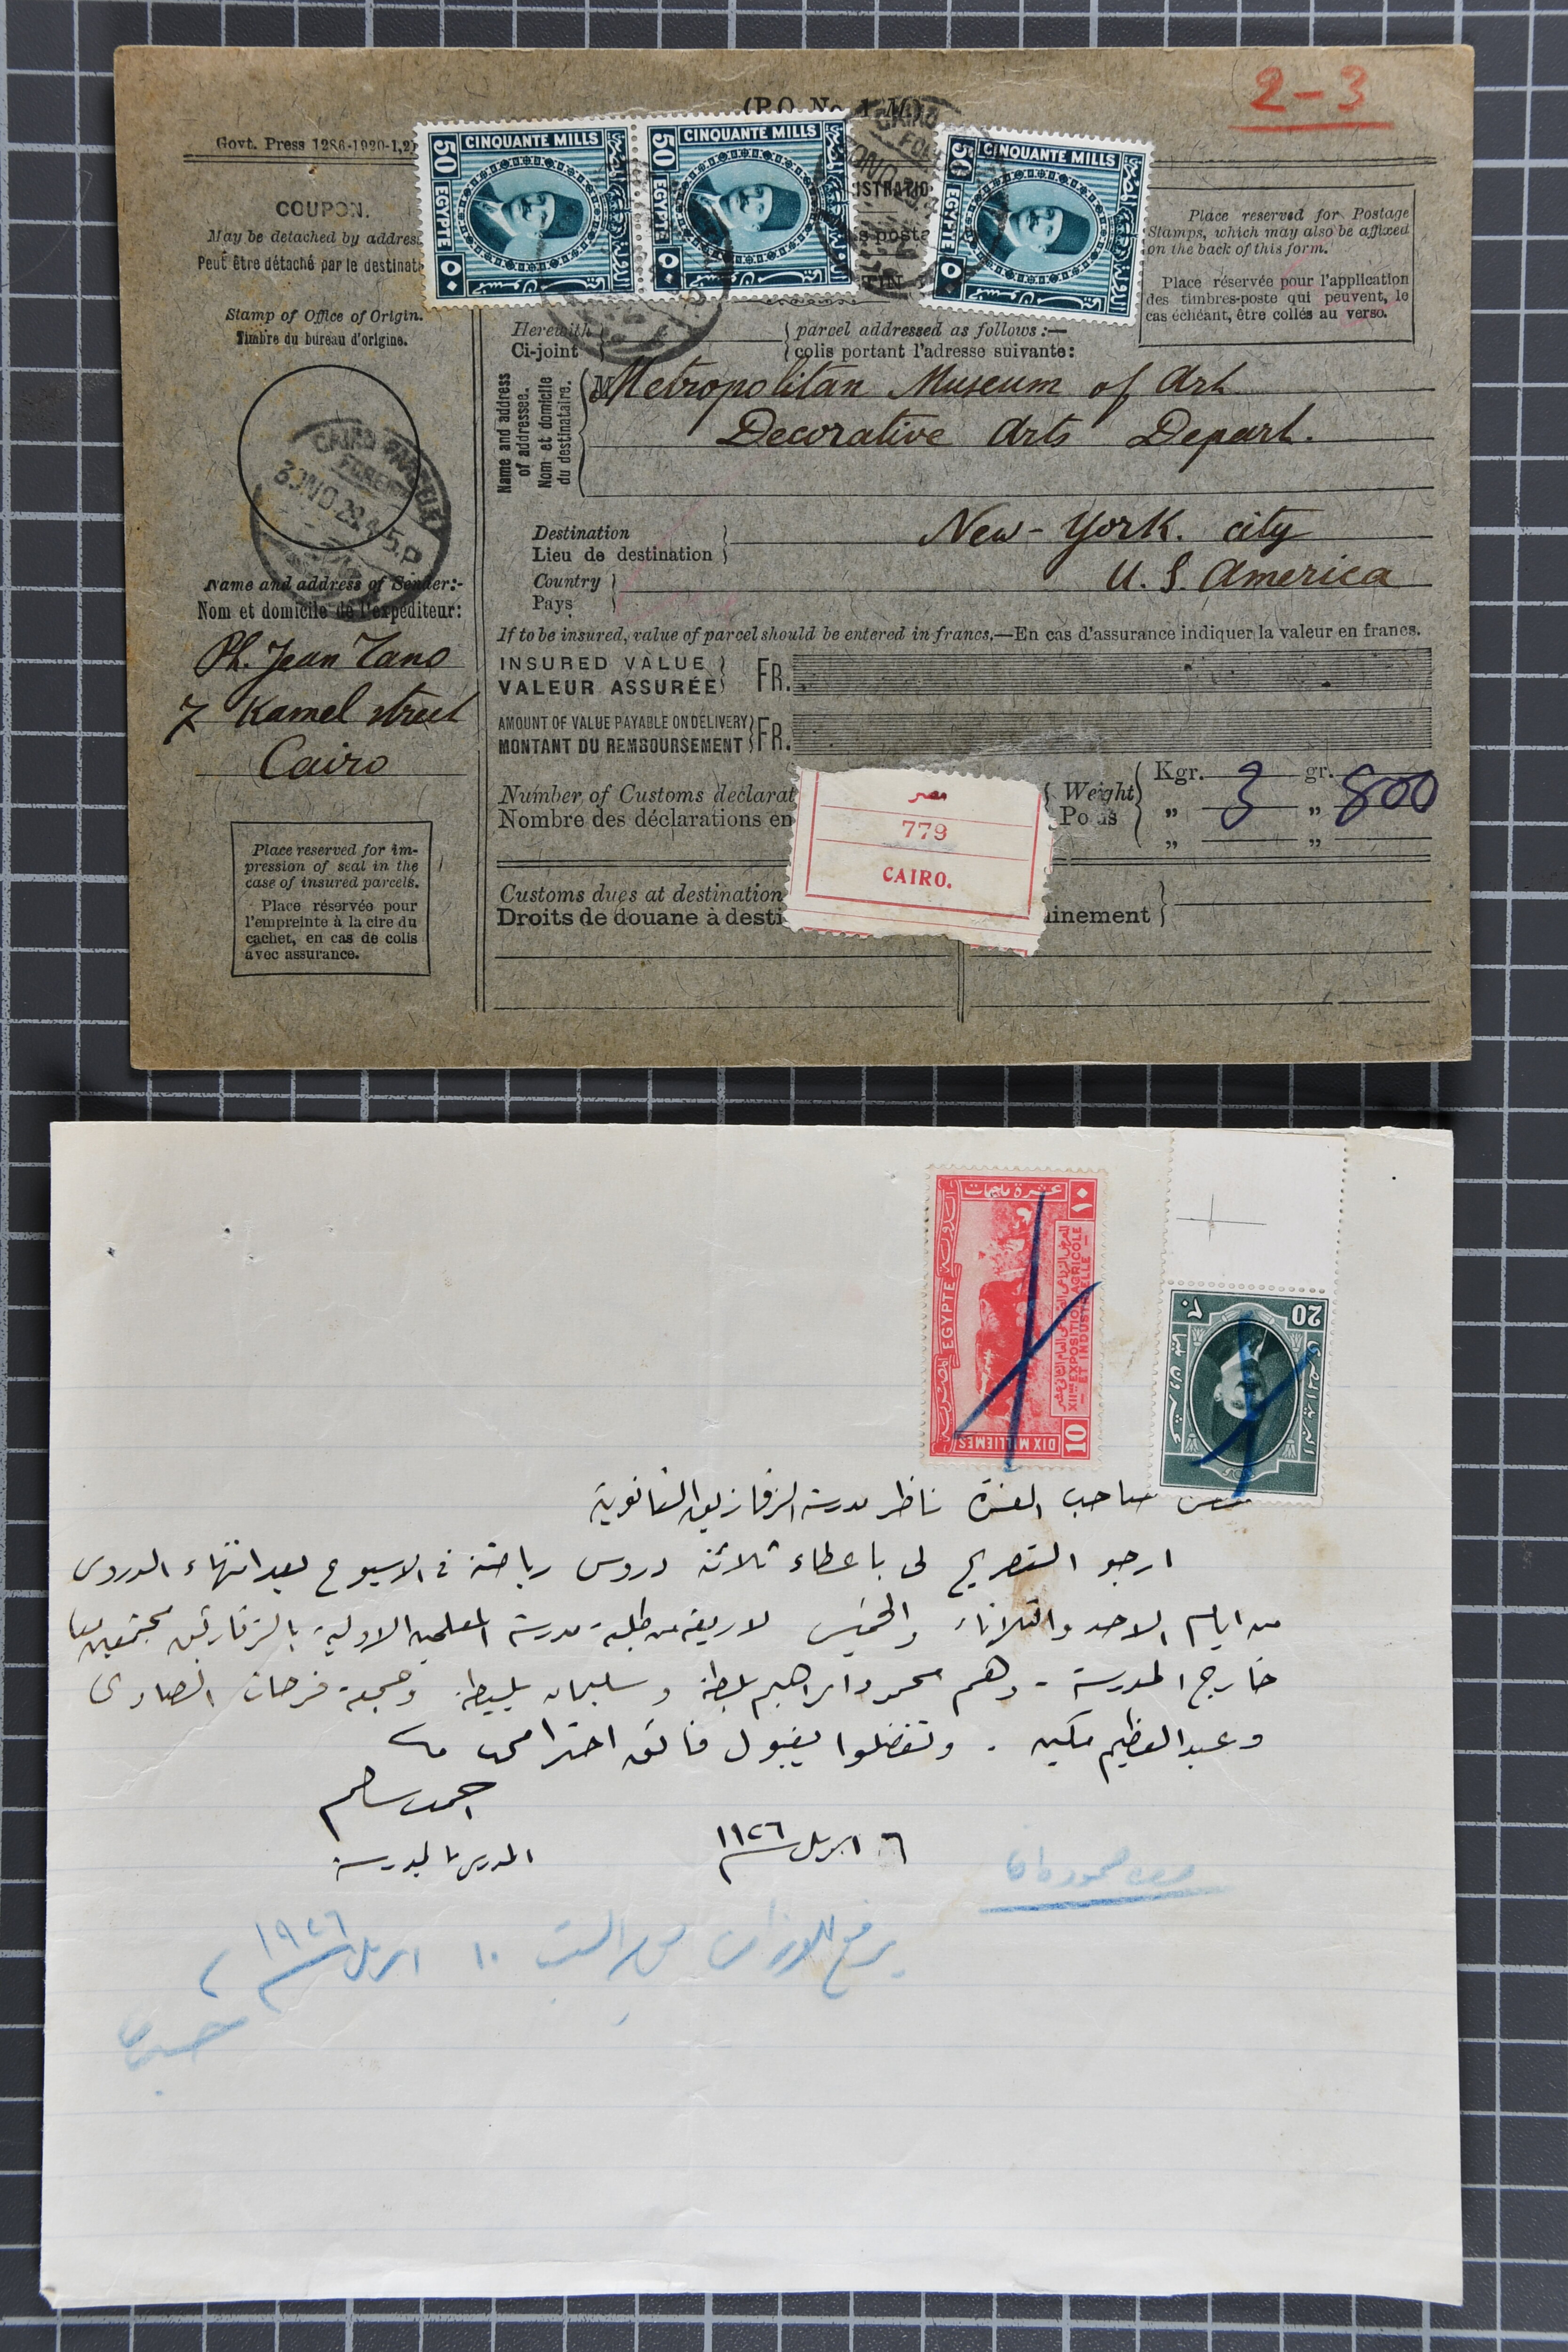 2-3
(P.O. No. 1 M)
Govt. Press 1286-1920-1,2
COUPON.
May be detached by address
Peut être détaché par le destinat
Stamp of Office of Origin.
Timbre du bureau d'origine.
CAIRO PARCELS
FOREIGN
30 NO. 29. 4-5. P
Name and address of Sender:-
Nom et domicile de l'expéditeur:
Ph. Jean Tano
7 Kamel street
Cairo
Place reserved for im-
pression of seal in the
case of insured parcels.
Place réservée pour
l'empreinte à la cire du
cachet, en cas de colis
avec assurance.
50 CINQUANTE MILLS
EGYPTE
٥٠
50 CINQUANTE MILLS
EGYPTE
٥٠
50 CINQUANTE MILLS
EGYPTE
٥٠
CAIRO
ISTRATIO
s posta
TIN
Place reserved for Postage
Stamps, which may also be affixed
on the back of this form.
Place réservée pour l'application
des timbres-poste qui peuvent, le
cas échéant, être collés au verso.
Herewith parcel addressed as follows:—
Ci-joint colis portant l'adresse suivante:
Name and address
of addressee.
Nom et domicile
du destinataire.
M Metropolitan Museum of Art
Decorative Arts Depart.
Destination
Lieu de destination
New-York. city
Country
Pays
U. S. America
If to be insured, value of parcel should be entered in francs.—En cas d'assurance indiquer la valeur en francs.
INSURED VALUE
VALEUR ASSURÉE FR.
AMOUNT OF VALUE PAYABLE ON DELIVERY
MONTANT DU REMBOURSEMENT FR.
Number of Customs declarat
Nombre des déclarations en
Weight
Poids
Kgr. gr.
„ 3 „ 800
„ „
مصر
779
CAIRO.
Customs dues at destination
Droits de douane à desti
inement
عشرة مليمات
١٠
EGYPTE
الدولة المصرية
المعرض الزراعى الصناعى العام الثانى عشر
XIIme EXPOSITION AGRICOLE
ET INDUSTRIELLE
DIX MILLIEMES
10
20
٢٠
البريد المصرى
عشرون مليما
صاحب العزة ناظر مدرسة الزقازيق الثانوية
ارجو التصريح لى باعطاء ثلاثة دروس رياضة فى الاسبوع بعد انتهاء الدروس
من ايام الاحد والثلاثاء والخميس لاربعة من طلبة مدرسة المعلمين الاولية بالزقازيق مجتمعين معا
خارج المدرسة - وهم محمود ابراهيم بلبطة وسليمان بلبطة وجمعة فرحات الصاوى
وعبد العظيم مكين . وتفضلوا بقبول فائق احترامى
احمد سالم
المدرس بالمدرسة
٦ ابريل ١٩٢٦
١٠ ابريل ١٩٢٦